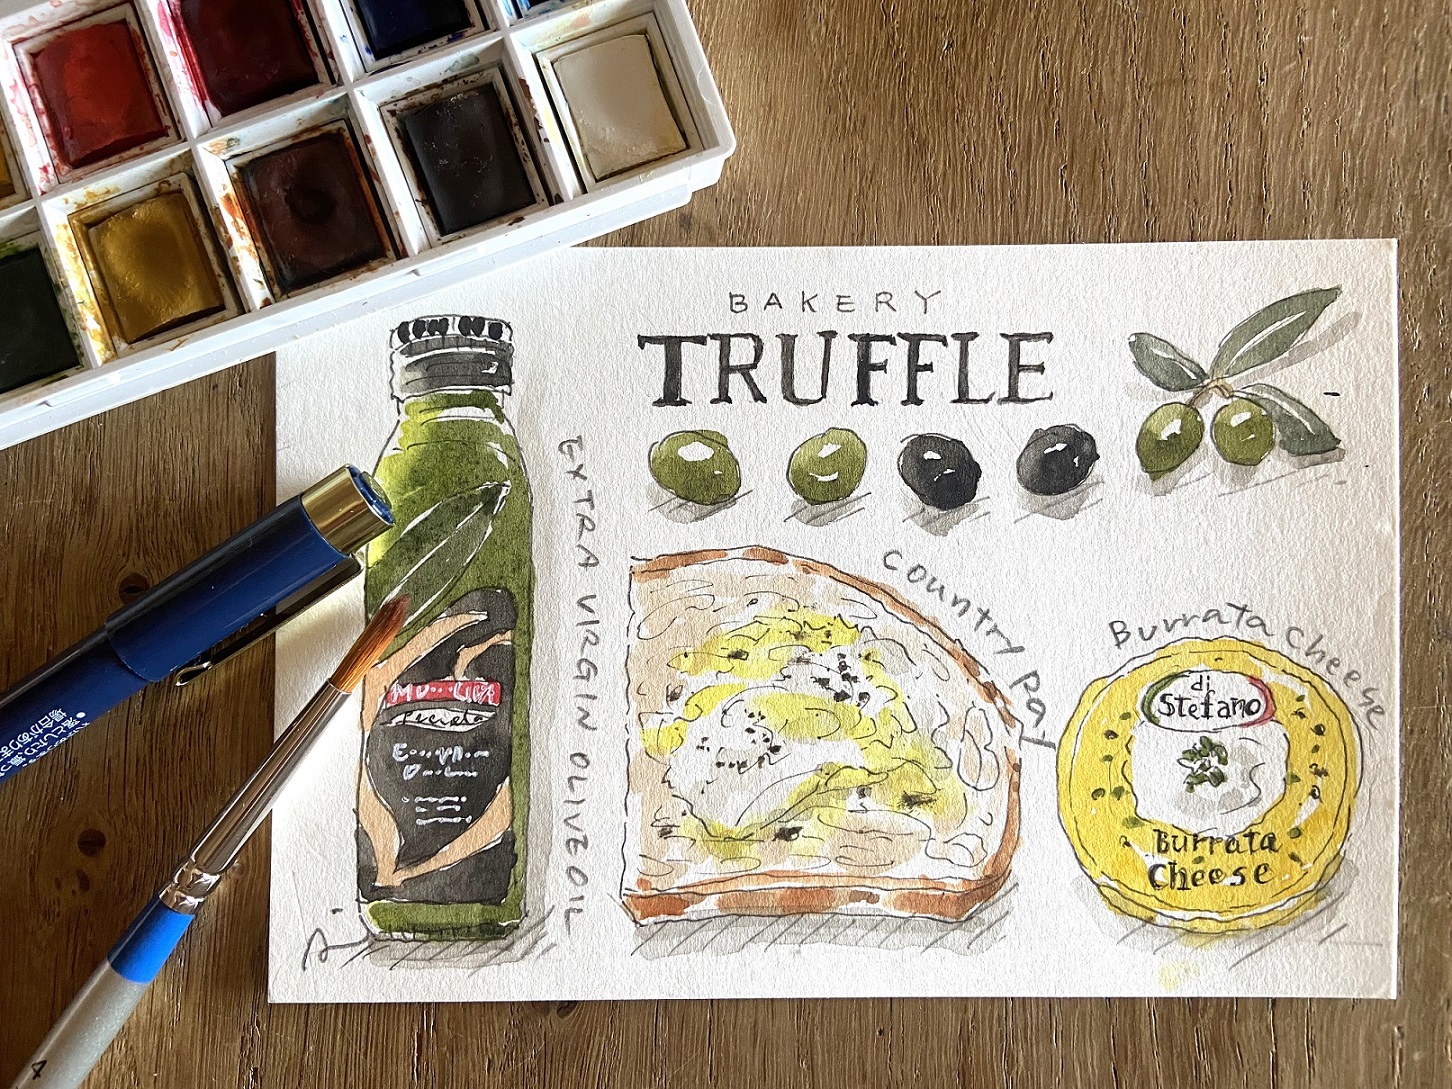 BAKERY
TRUFFLE
EXTRA VIRGIN OLIVE OIL
Country Pay
Burrata Cheese
di
Stefano
Burrata
Cheese
4